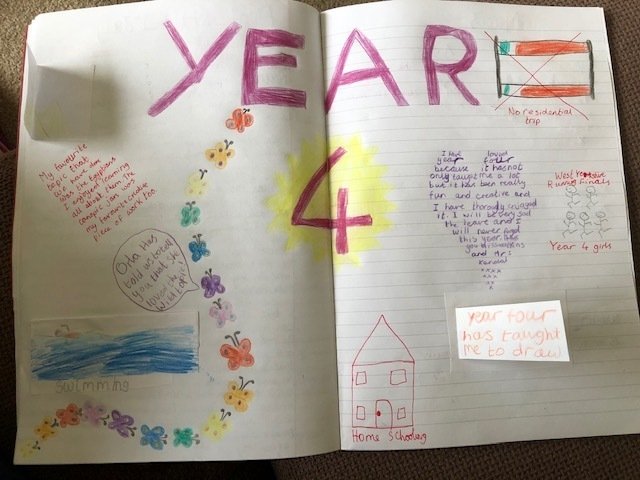 YEAR
4
My favourite
topic that
we have done
was the Egyptians
I enjoyed learning
all about them. The
canopic jar was
my favourite creative
piece of work too.
told us to tell
you that she
loves the
swimming
No residential
trip
I have loved
year four
because it has not
only taught me a lot
but it has been really
fun and creative and
I have thoroughly enjoyed
it. I will be very sad
to leave and I
will never forget
this year.
and Mrs
Kendal
xxxx
xxx
xx
x
West
Running Finals
Year 4 girls
year four
has taught
me to draw
Home Schooling